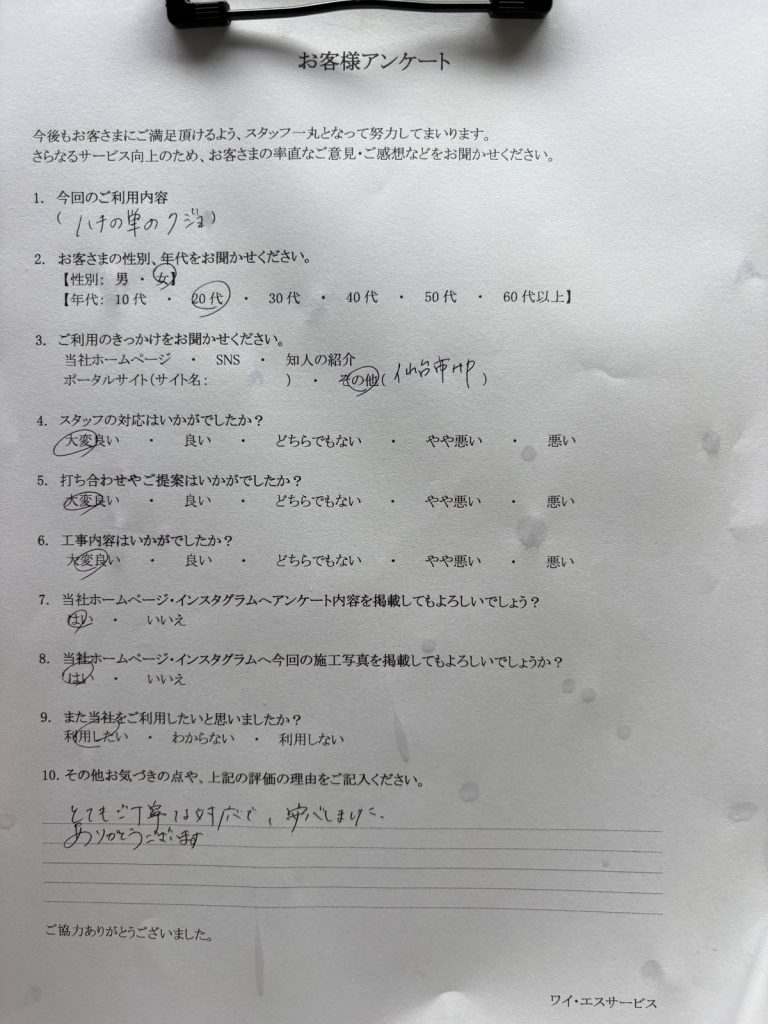 お客様アンケート
今後もお客さまにご満足頂けるよう、スタッフ一丸となって努力してまいります。
さらなるサービス向上のため、お客さまの率直なご意見・ご感想などをお聞かせください。
1. 今回のご利用内容
(ハチの巣のクジョ)
2. お客さまの性別、年代をお聞かせください。
【性別: 男 ・ 女】
【年代: 10代 ・ 20代 ・ 30代 ・ 40代 ・ 50代 ・ 60代以上】
3. ご利用のきっかけをお聞かせください。
当社ホームページ ・ SNS ・ 知人の紹介
ポータルサイト(サイト名: ) ・ その他(仙台市HP)
4. スタッフの対応はいかがでしたか?
大変良い ・ 良い ・ どちらでもない ・ やや悪い ・ 悪い
5. 打ち合わせやご提案はいかがでしたか?
大変良い ・ 良い ・ どちらでもない ・ やや悪い ・ 悪い
6. 工事内容はいかがでしたか?
大変良い ・ 良い ・ どちらでもない ・ やや悪い ・ 悪い
7. 当社ホームページ・インスタグラムへアンケート内容を掲載してもよろしいでしょう?
はい ・ いいえ
8. 当社ホームページ・インスタグラムへ今回の施工写真を掲載してもよろしいでしょうか?
はい ・ いいえ
9. また当社をご利用したいと思いましたか?
利用したい ・ わからない ・ 利用しない
10. その他お気づきの点や、上記の評価の理由をご記入ください。
とてもご丁寧な対応で、安心しました
ありがとうございます
ご協力ありがとうございました。
ワイ・エスサービス